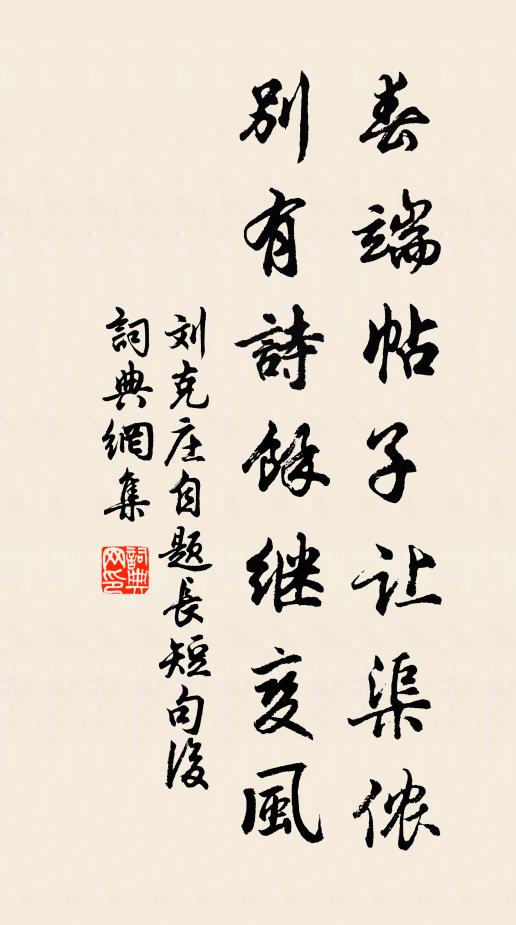 春端帖子让渠侬
别有詩餘继变風
刘克庄自题長短句後
詞典網集
詞典网印